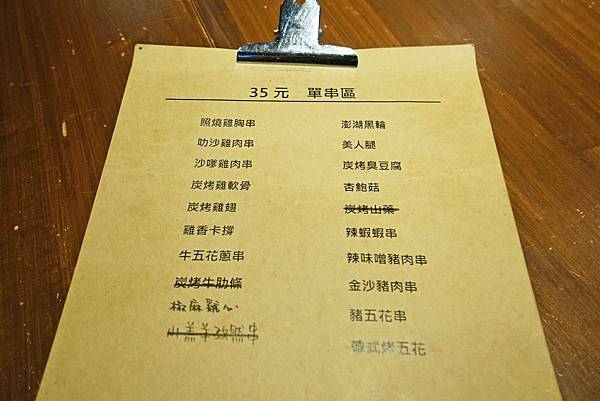 35元 單串區
照燒雞胸串
叻沙雞肉串
沙嗲雞肉串
炭烤雞軟骨
炭烤雞翅
雞香卡撐
牛五花蔥串
炭烤牛肋條
椒麻雞心
山羔羊孜然串
澎湖黑輪
美人腿
炭烤臭豆腐
杏鮑菇
炭烤山藥
辣蝦蝦串
辣味噌豬肉串
金沙豬肉串
豬五花串
韓式烤五花